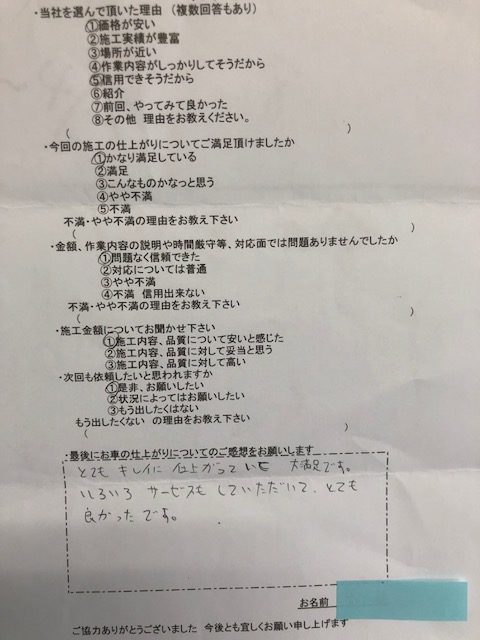 ・当社を選んで頂いた理由 （複数回答もあり）
①価格が安い
②施工実績が豊富
③場所が近い
④作業内容がしっかりしてそうだから
⑤信用できそうだから
⑥紹介
⑦前回、やってみて良かった
⑧その他 理由をお教えください。
（ ）
・今回の施工の仕上がりについてご満足頂けましたか
①かなり満足している
②満足
③こんなものかなっと思う
④やや不満
⑤不満
不満・やや不満の理由をお教え下さい
（ ）
・金額、作業内容の説明や時間厳守等、対応面では問題ありませんでしたか
①問題なく信頼できた
②対応については普通
③やや不満
④不満 信用出来ない
不満・やや不満の理由をお教え下さい
（ ）
・施工金額についてお聞かせ下さい
①施工内容、品質について安いと感じた
②施工内容、品質に対して妥当と思う
③施工内容、品質に対して高い
・次回も依頼したいと思われますか
①是非、お願いしたい
②状況によってはお願いしたい
③もう出したくはない
もう出したくない の理由をお教え下さい
（ ）
・最後にお車の仕上がりについてのご感想をお願いします
とても キレイに 仕上がっていて 大満足です。
いろいろ サービスも していただいて、とても
良かったです。
お名前
ご協力ありがとうございました 今後とも宜しくお願い申し上げます